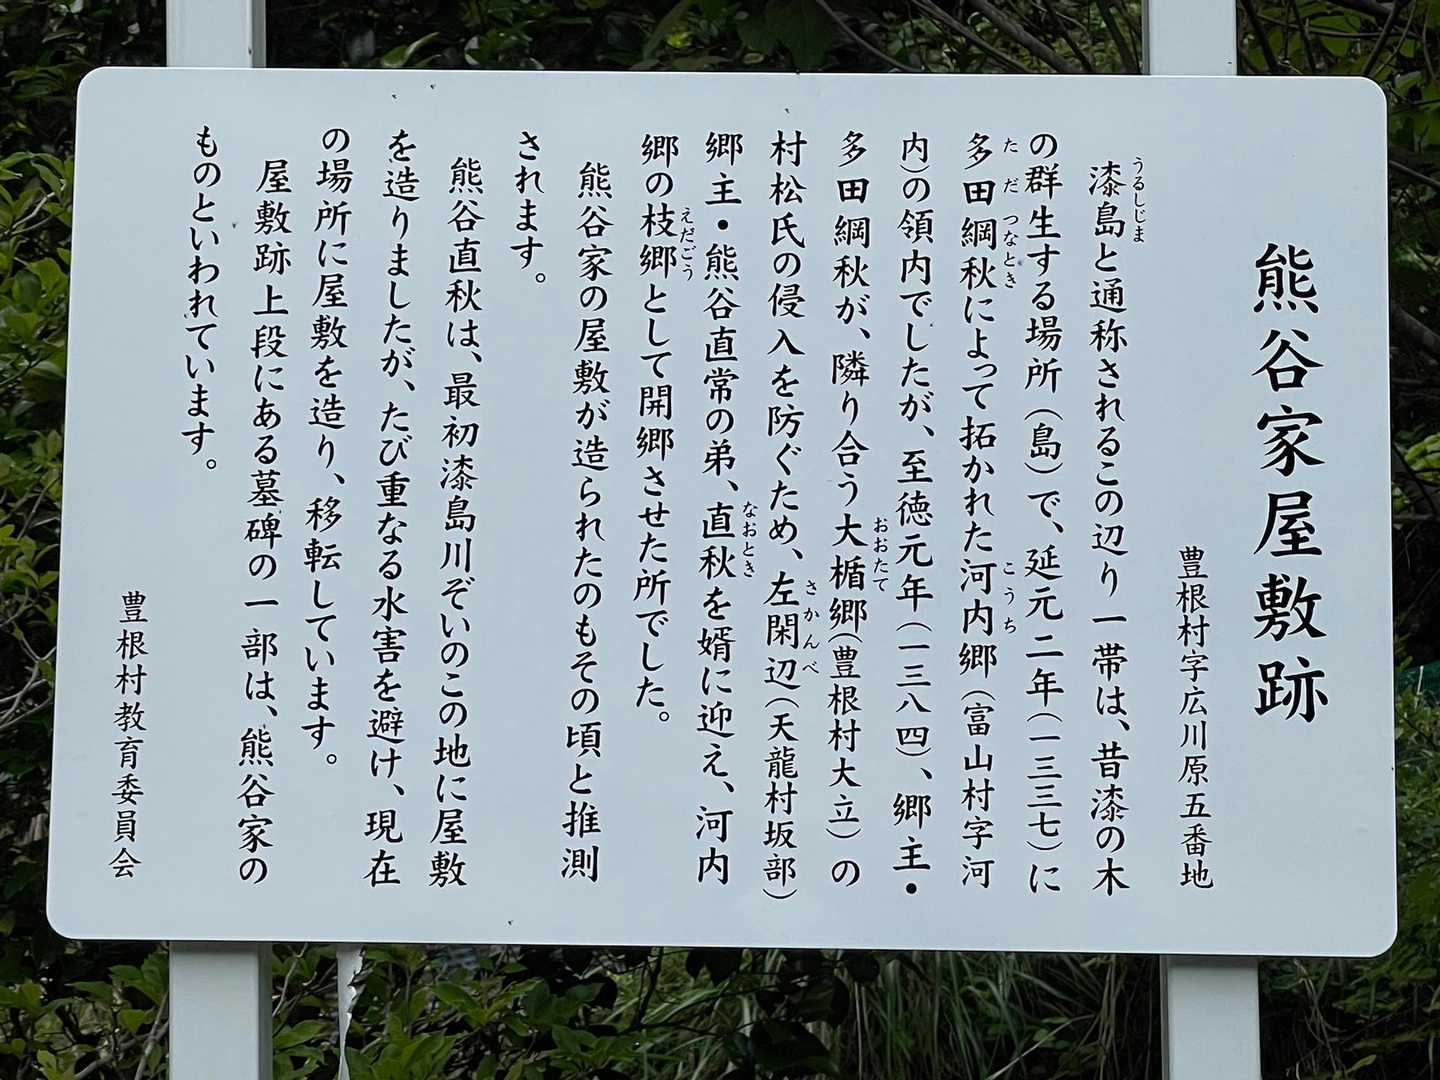 熊谷家屋敷跡
豊根村字広川原五番地
漆島と通称されるこの辺り一帯は、昔漆の木
うるしじま
の群生する場所(島)で、延元二年(一三三七)に
多田綱秋によって拓かれた河内郷(富山村字河
ただつなとき
こうち
内)の領内でしたが、至徳元年(一三八四)、郷主・
多田綱秋が、隣り合う大楯郷(豊根村大立)の
おおたて
村松氏の侵入を防ぐため、左閑辺(天龍村坂部)
さかんべ
郷主・熊谷直常の弟、直秋を婿に迎え、河内
なおとき
郷の枝郷として開郷させた所でした。
えだごう
熊谷家の屋敷が造られたのもその頃と推測
されます。
熊谷直秋は、最初漆島川ぞいのこの地に屋敷
を造りましたが、たび重なる水害を避け、現在
の場所に屋敷を造り、移転しています。
屋敷跡上段にある墓碑の一部は、熊谷家の
ものといわれています。
豊根村教育委員会